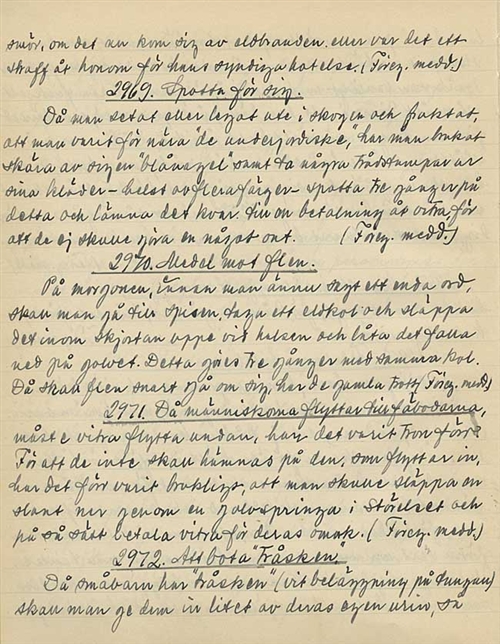 smör, om det nu kom sig av eldbranden eller var det ett
straff åt honom för hans syndiga hotelse. (Föreg. medd.)
2969. Spotta för sig.
Då man setat eller legat ute i skogen och fruktat,
att man varit för nära "de underjordiske," har man brukat
skära av sig en "blånagel" samt ta några trådstumpar ur
sina kläder – helst av flera färger – spotta tre gånger på
detta och lämna det kvar till en betalning åt vitra för
att de ej skulle göra en något ont. (Föreg. medd.)
2970. Medel mot flen.
På morgonen, innan man ännu sagt ett enda ord,
skall man gå till spisen, taga ett eldkol och släppa
det inom skjortan uppe vid halsen och låta det falla
ned på golvet. Detta göres tre gånger med samma kol.
Då skall flen snart gå om sig, har de gamla trott. (Föreg. medd.)
2971. Då människorna flyttar till fäbodarna,
måste vitra flytta undan, har det varit tron förr.
För att de inte skall hämnas på den, som flyttar in,
har det förr varit brukligt, att man skulle släppa en
slant ner genom en golvspringa i störelset och
på så sätt betala vitra för deras omak. (Föreg. medd.)
2972. Att bota "Tråsken."
Då småbarn har "tråsken" (vit beläggning på tungan)
skall man ge dem in litet av deras egen urin, så